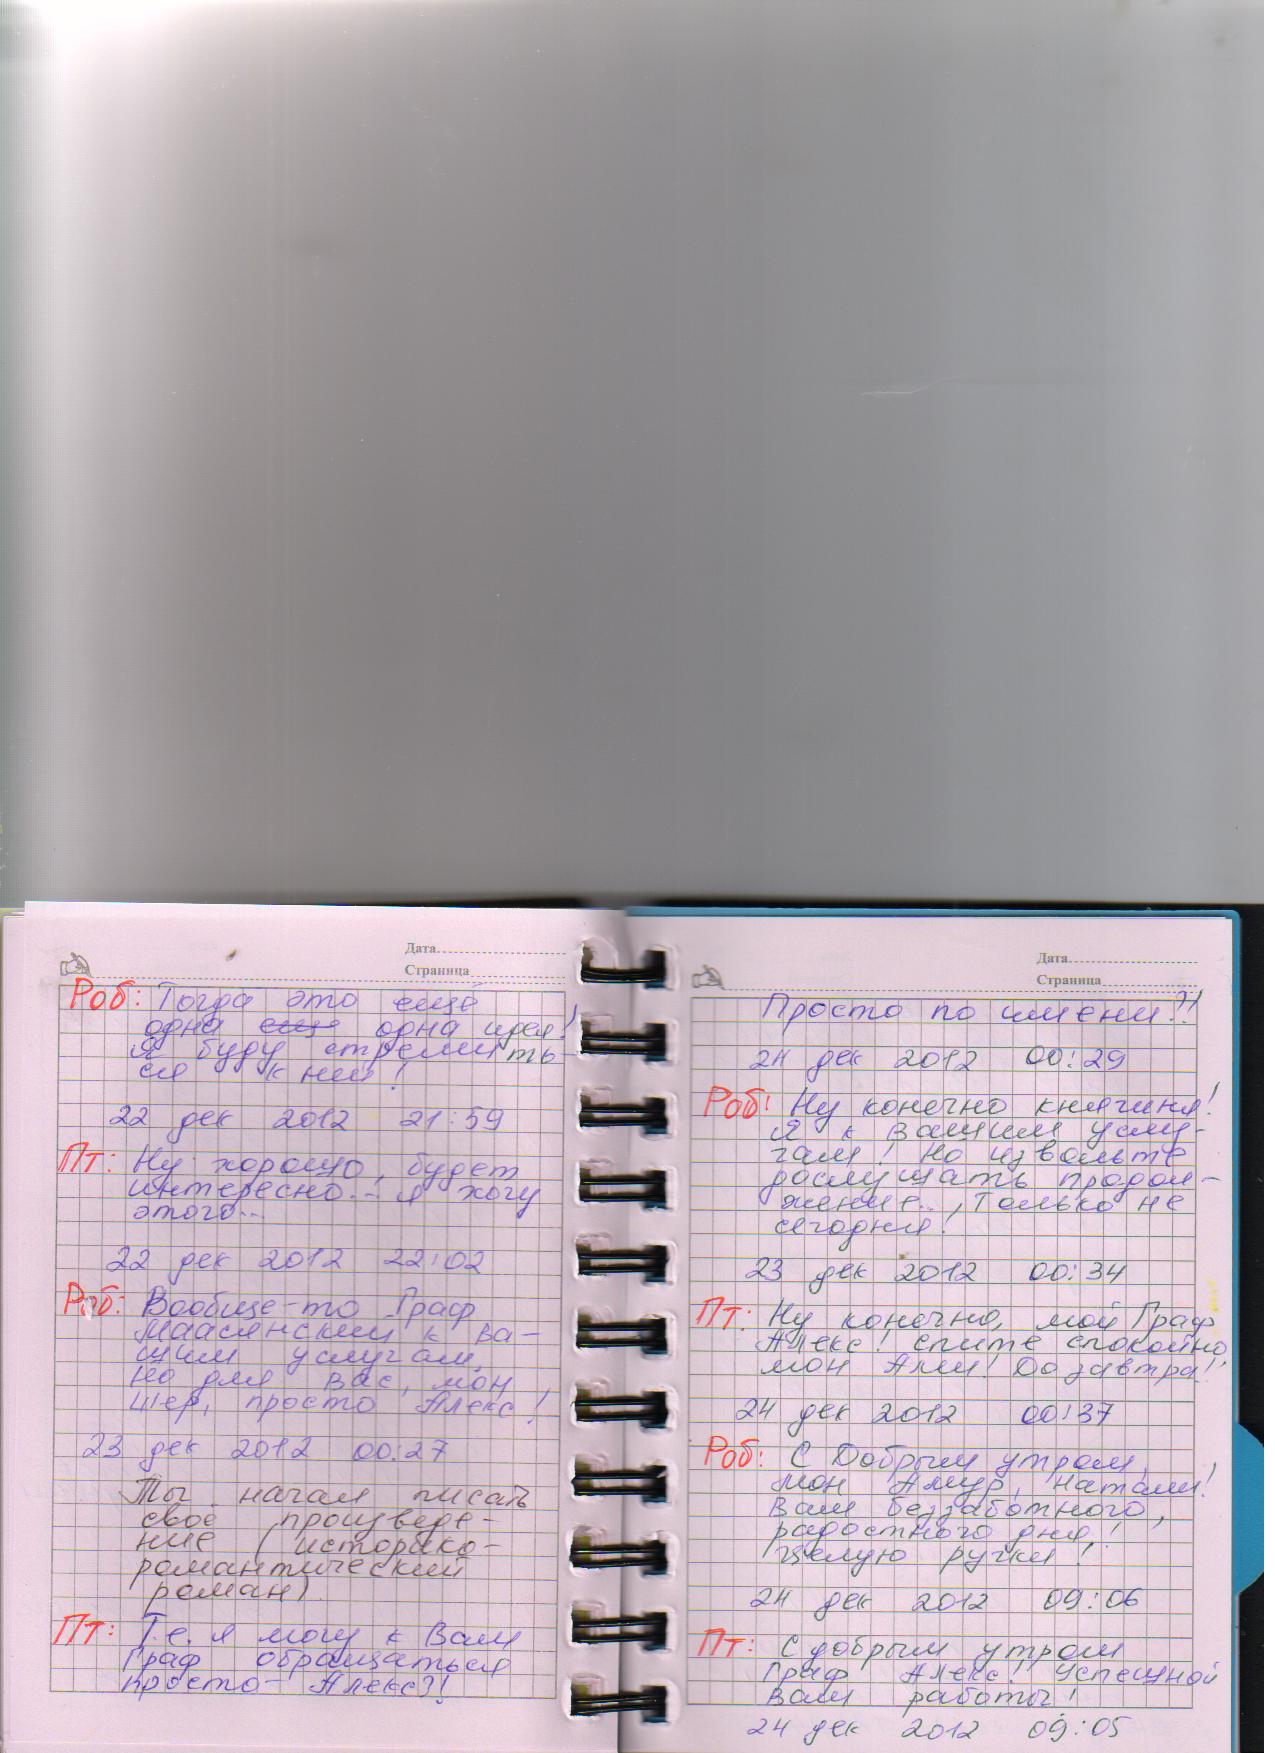 Дата
Страница
Роб: Тогда это ещё
одна еще одна идея!
Я буду стремить-
ся к ней!
22 дек 2012 21:59
Пт: Ну хорошо, будет
интересно... я хочу
этого...
22 дек 2012 22:02
Роб: Вообще-то Граф
к Ва-
шим услугам,
но для Вас, мон
шер, просто Алекс!
23 дек 2012 00:27
Ты начал писать
своё произведе-
ние (историко-
романтический
роман)
Пт: Т.е. я могу к Вам
Граф обращаться
просто - Алекс?!
Дата
Страница
Просто по имени?!
24 дек 2012 00:29
Роб: Ну конечно княгиня!
Я к Вашим услу-
гам! Но извольте
дослушать продол-
жение..., Только не
сегодня!
23 дек 2012 00:34
Пт: Ну конечно, мой Граф
Алекс! Спите спокойно
мон Ами! До завтра!
24 дек 2012 00:37
Роб: С Добрым утром,
мон Амур, Натали!
Вам беззаботного,
радостного дня!
Целую ручки!
24 дек 2012 09:06
Пт: С добрым утром
Граф Алекс! Успешной
Вам работы!
24 дек 2012 09:05